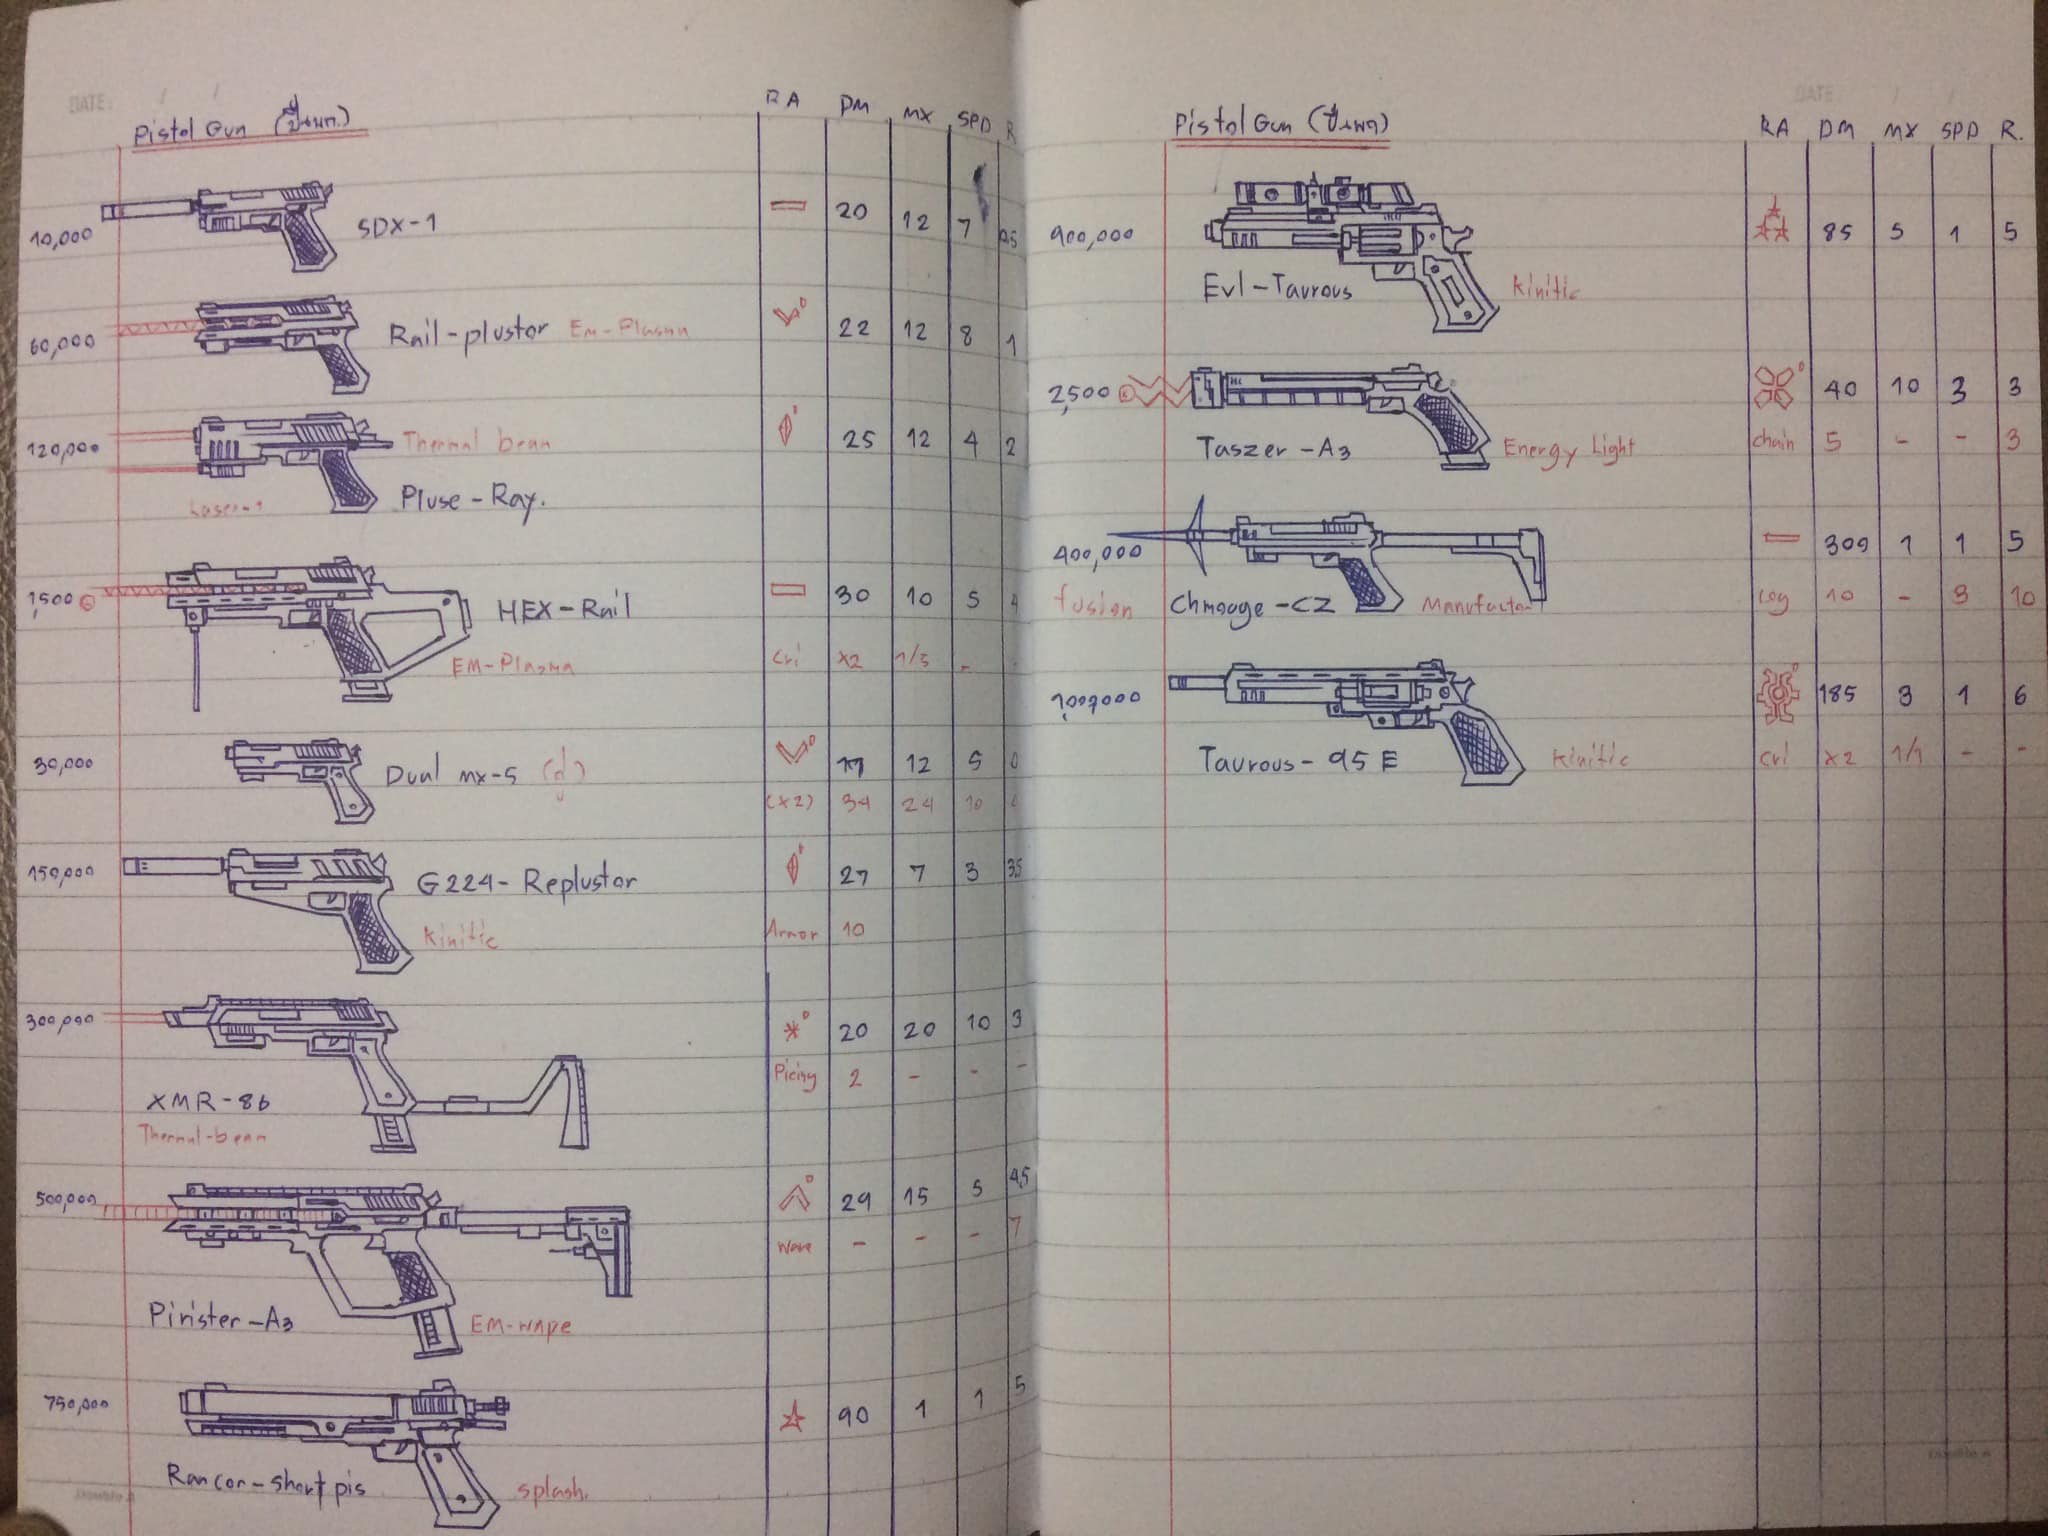 DATE: / /
Pistol Gun (ปืนพก.) RA DM MX SPD R
10,000 SDX-1 20 12 7 0.5
60,000 Rail-plustor Em-Plasma 22 12 8 1
120,000 Thermal beam 25 12 4 2
Laser-1 Pluse-Ray.
1,500 HEX-Rail 30 10 5 4
EM-Plasma cri x2 1/5 -
30,000 Dual mx-5 (คู่) 12 5 0
(x2) 34 24 10 0
150,000 G224-Replustor 27 7 3 3.5
Kinitic Armor 10
300,000 20 20 10 3
Picing 2 - - -
XMR-86
Thermal-beam
500,000 29 15 5 4.5
Wave - - - 7
Pirister-A3 EM-wape
750,000 90 1 1 5
Rancor-short pis splash.
DATE / /
Pistol Gun (ปืนพก) RA DM MX SPD R.
900,000 85 5 1 5
Evl-Taurous Kinitic
2,500 40 10 3 3
Taszer-A3 Energy Light chain 5 - - 3
400,000 309 1 1 5
fusion Chmooge-CZ Manufactor Leg 10 - 3 10
1,000000 185 3 1 6
Taurous-95E Kinitic cri x2 1/1 - -